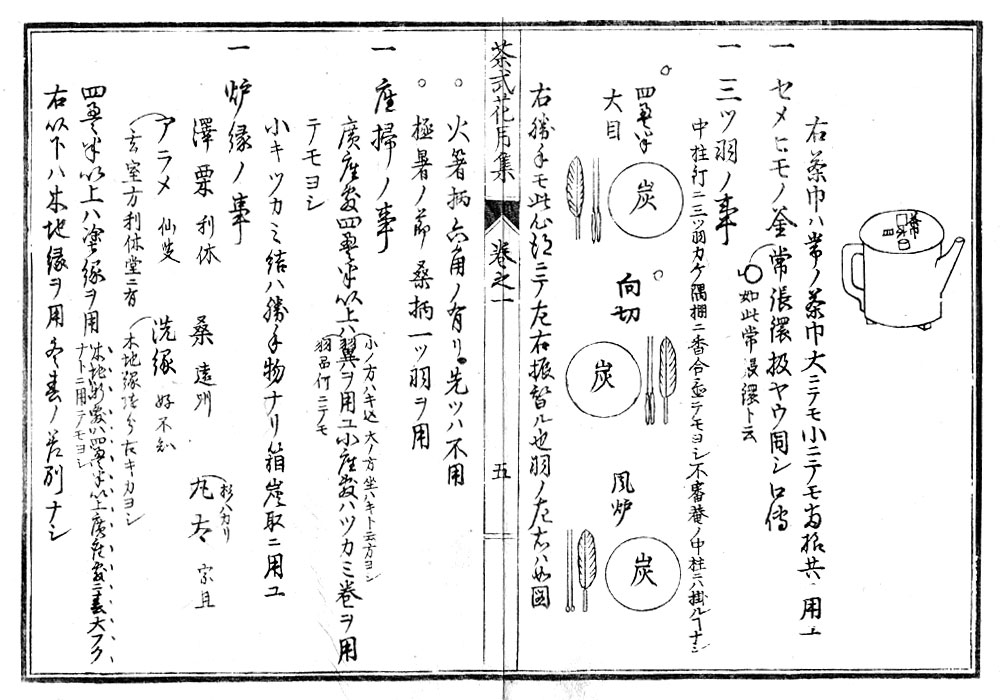 右茶巾ハ常ノ茶巾大ニテモ小ニテモ 共ニ用ユ
一 セメヒモノ釜 常張鐶扱ヤウ同シ口傳
如此常 鐶ト云
一 三ツ羽ノ事
中柱釘ニ三ツ羽カケ隅棚ニ香合 ニテモヨシ不審菴ノ中柱ニハ掛ルヿナシ
四畳半
大目
炭
向切
炭
風炉
炭
右勝手モ此心得ニテ左右振替ル也羽ノ左右ハ如図
茶式花月集
巻之一
五
。火箸柄六角ノ有リ 先ツハ不用
。極暑ノ節 桑柄一ツ羽ヲ用
一 座掃ノ事
小ノ方ハキ込 大ノ方坐ハキト云方ヨシ
廣座敷四畳半以上ハ翼ヲ用ユ小座敷ハツカミ巻ヲ用
羽吊何ニテモ
テモヨシ
小キツカミ結ハ勝手物ナリ箱炭取ニ用ユ
一 炉縁ノ事
澤栗 利休 桑 遠州 丸太 宗旦
杉ハカリ
アラメ 仙叟 洗縁 好不知
玄室方利休堂ニ有 木地縁 ヨシ
四畳半以上ハ塗縁ヲ用
木地 四畳半以上廣座敷ニ
ナトニ用テモヨシ
右以下ハ木地縁ヲ用冬春ノ差別ナシ